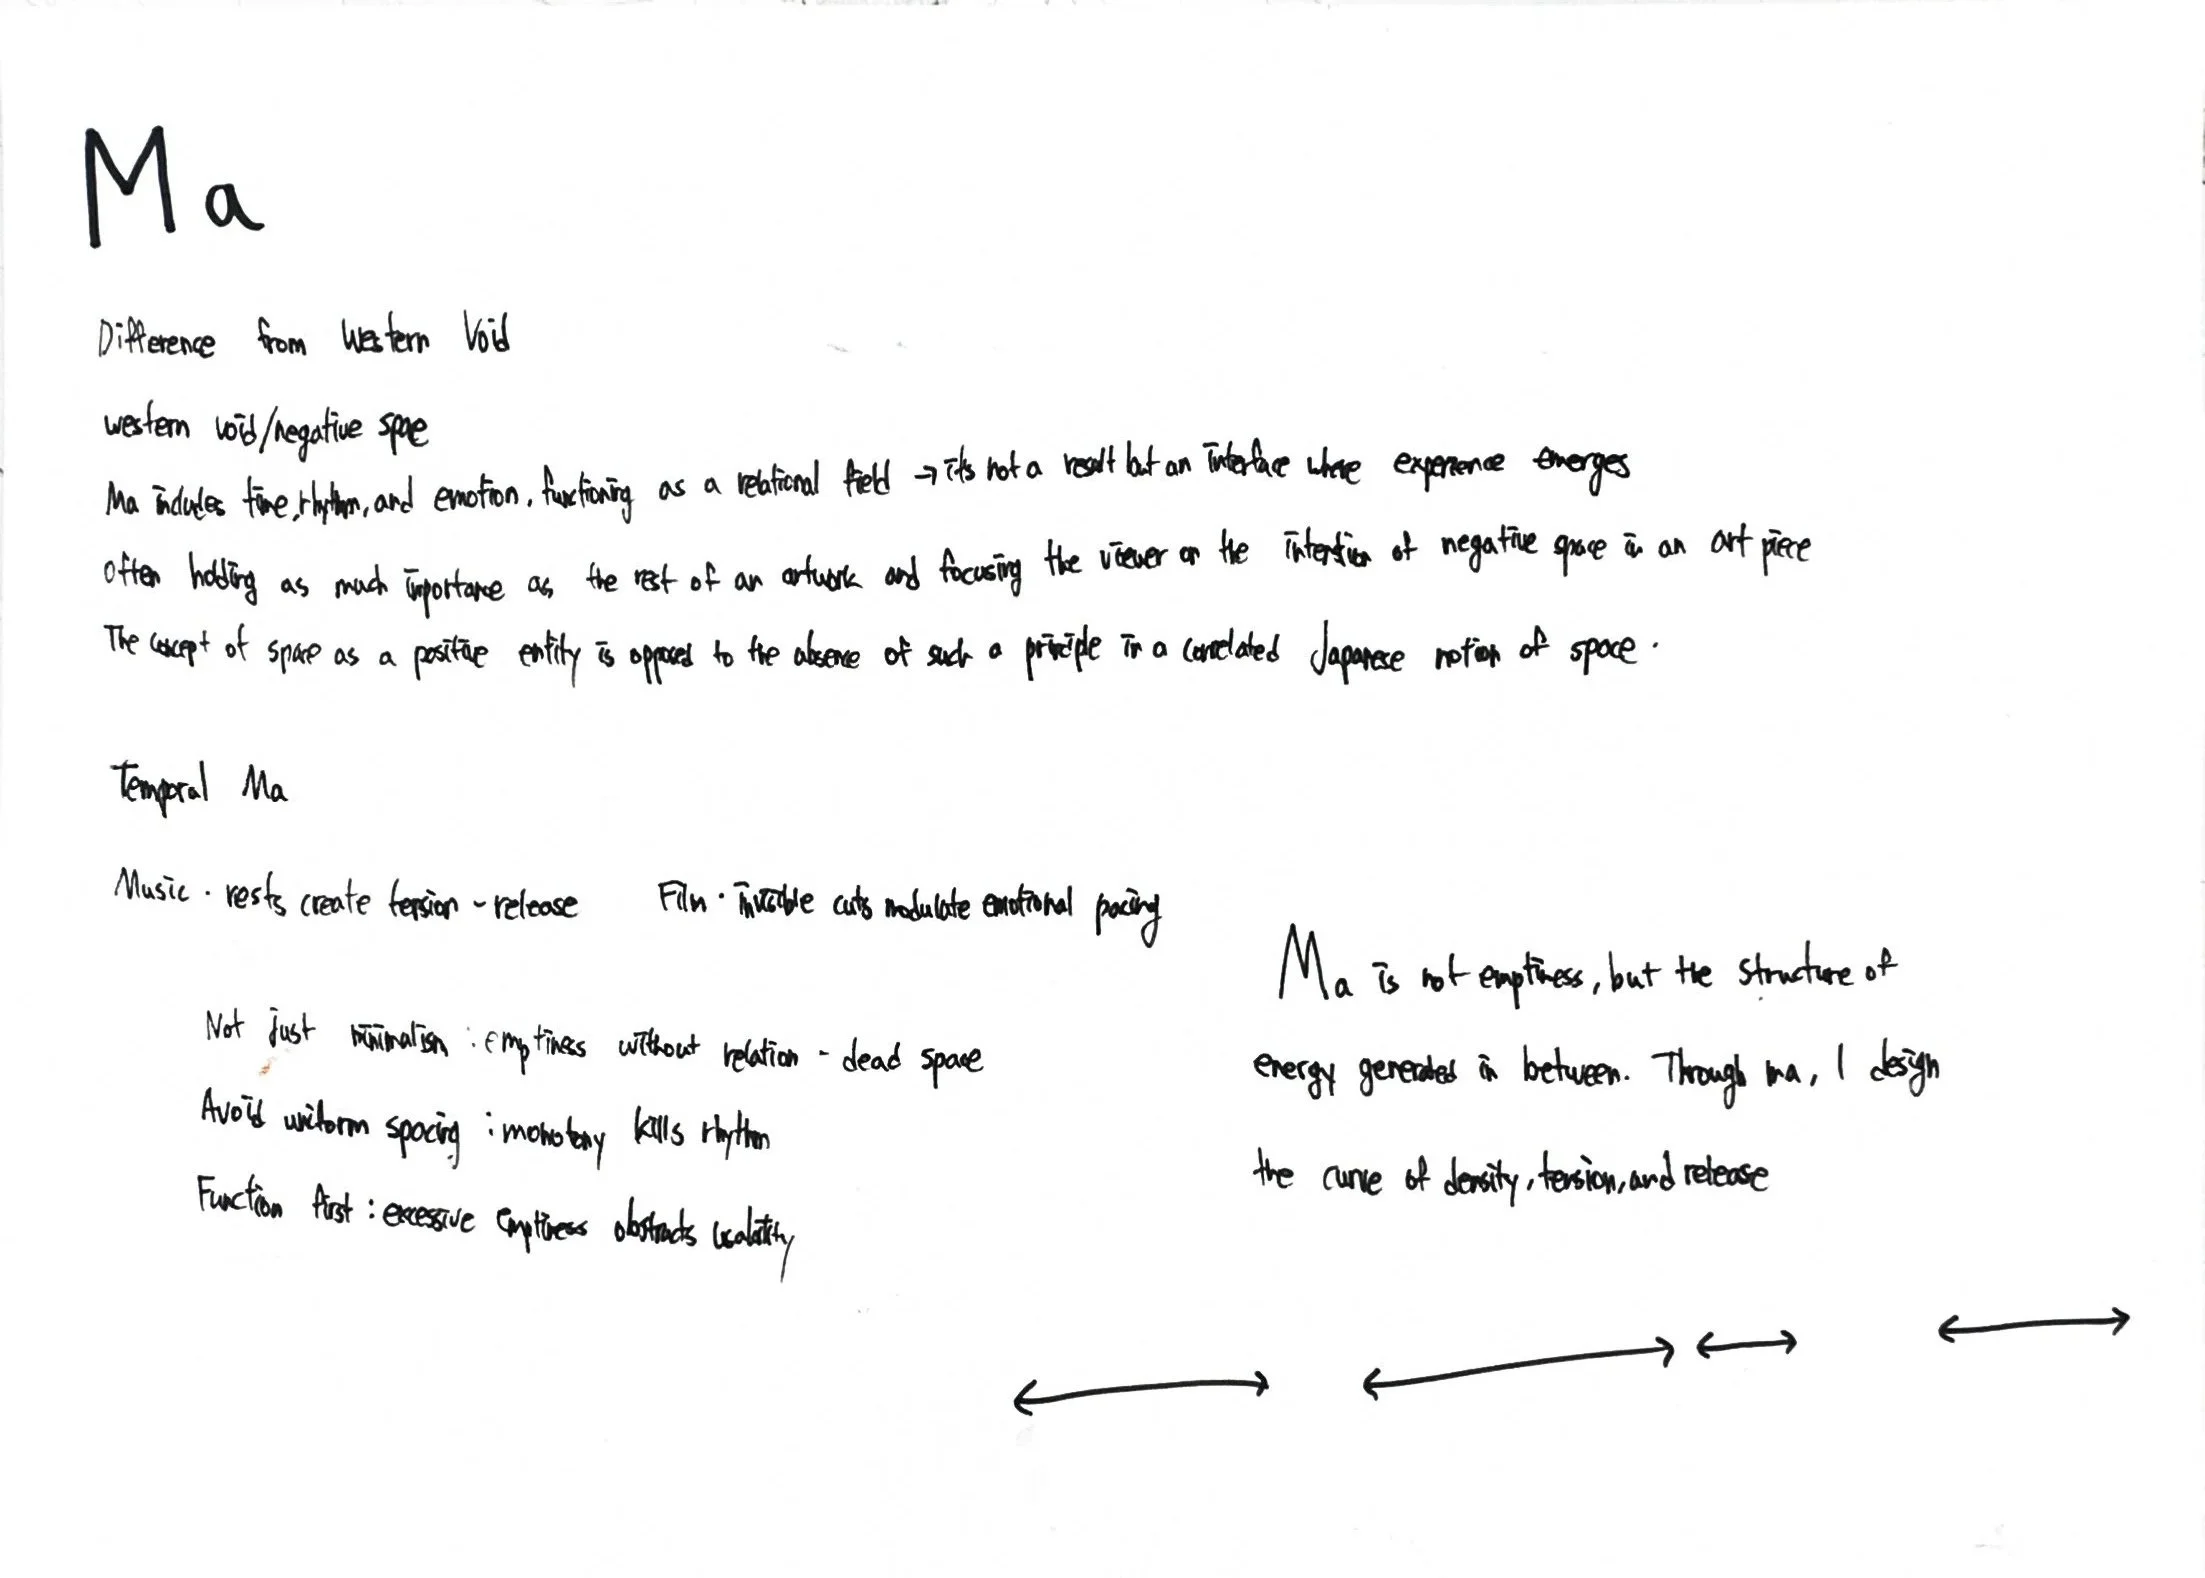 Ma
Difference from Western Void
western void/negative spae
Ma includes time, rhythm, and emotion, functioning as a relational field → it's not a result but an interface where experience emerges
often holding as much importance as the rest of an artwork and focusing the viewer on the intention of negative space in an art piece
The concept of space as a positive entity is opposed to the absence of such a principle in a correlated Japanese notion of space.
Temporal Ma
Music · rests create tension - release Film · invisible cuts modulate emotional pacing
Not just minimalism : emptiness without relation - dead space
Avoid uniform spacing : monotony kills rhythm
Function first : excessive emptiness obstracts usability
Ma is not emptiness, but the structure of
energy generated in between. Through ma, I design
the curve of density, tension, and release